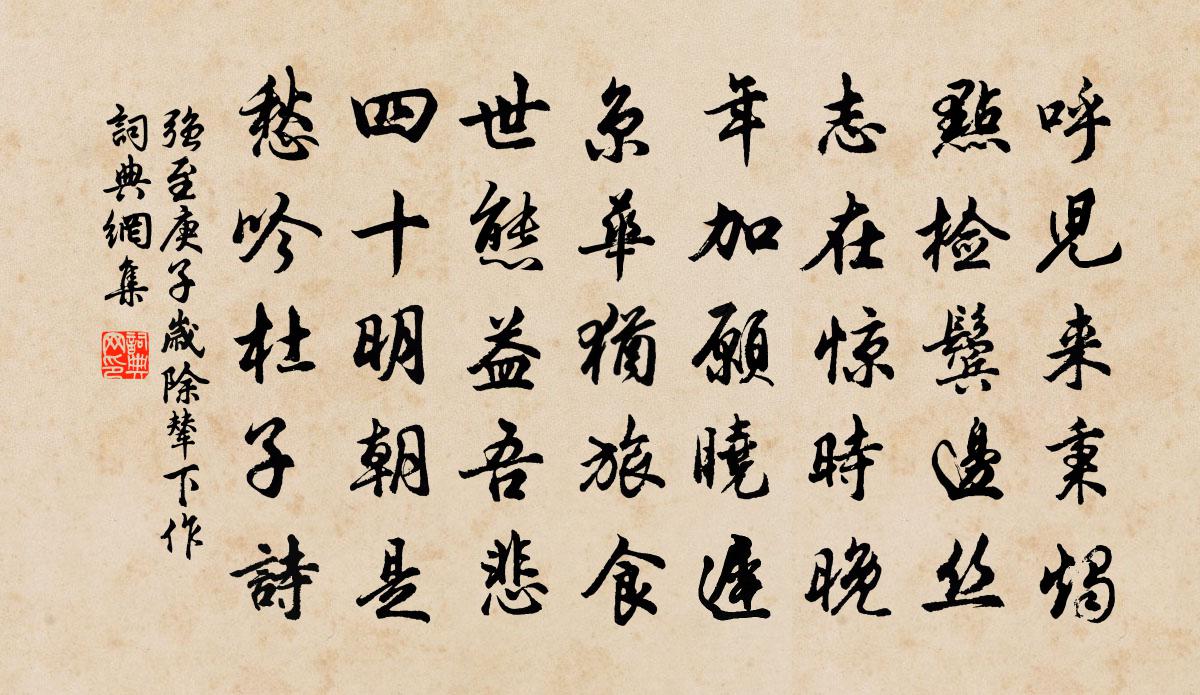 呼児来秉燭
點檢鬓邊丝
志在惊時晚
年加願曉遲
京華猶旅食
世態益吾悲
四十明朝是
愁吟杜子詩
強至庚子歲除輦下作
詞典網集
詞典網印